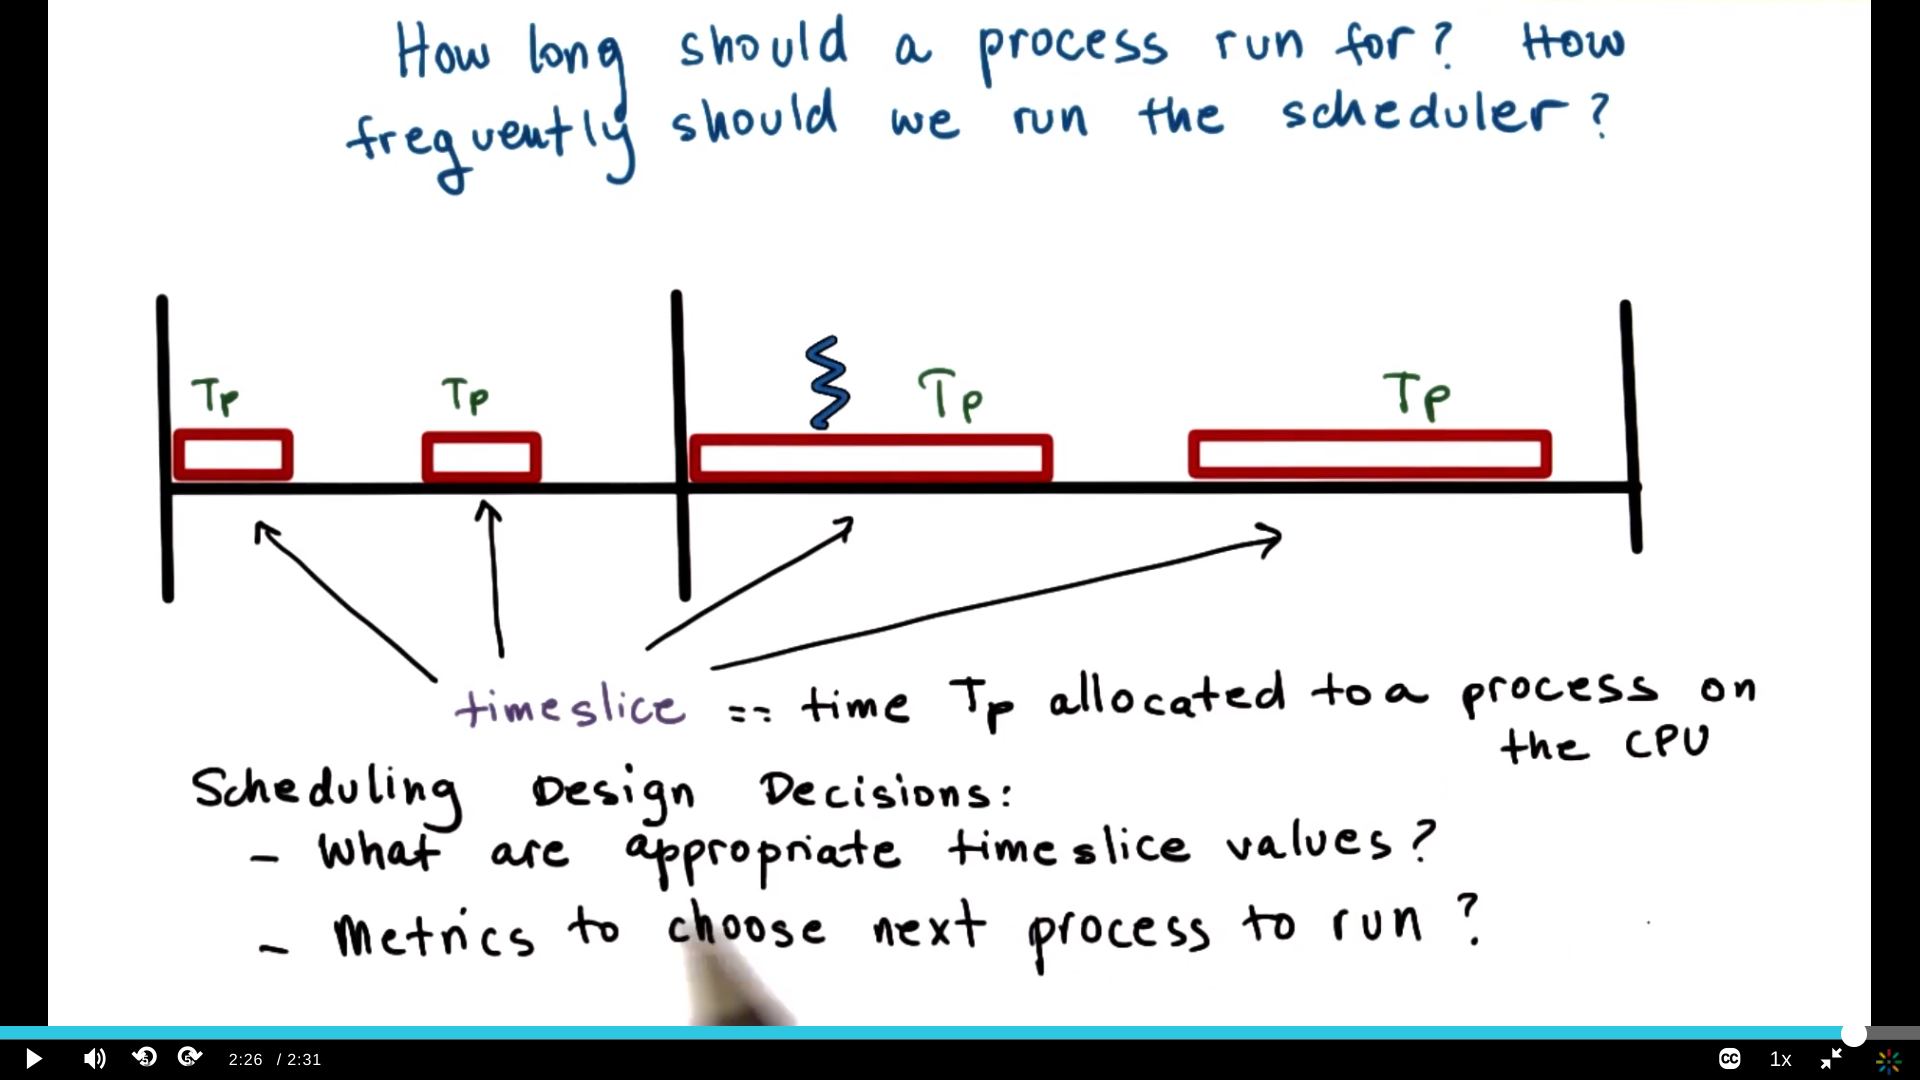 How long should a process run for? How
frequently should we run the scheduler?
Tp Tp Tp Tp
timeslice == time Tp allocated to a process on
the CPU
Scheduling Design Decisions:
- What are appropriate timeslice values?
- Metrics to choose next process to run?
2:26 / 2:31
5
5
CC
1x